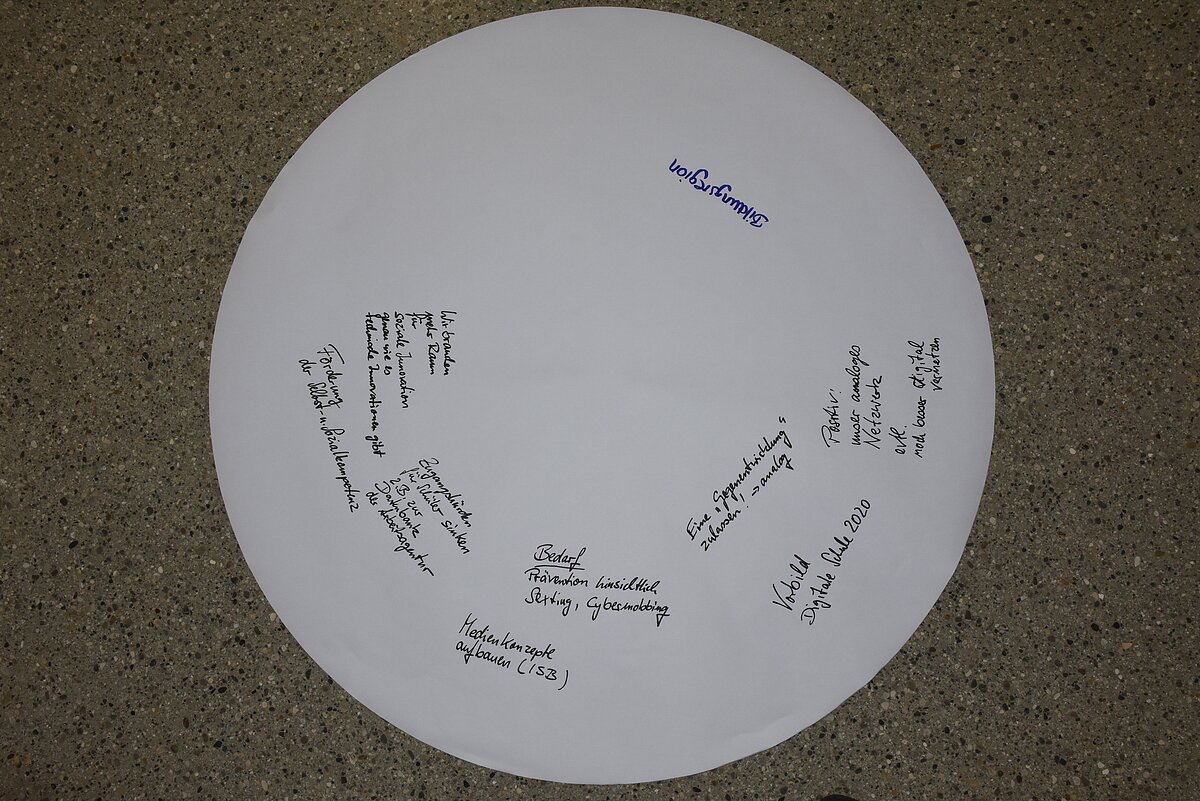 Bildungsregion
Wir brauchen
mehr Raum
für
soziale Innovation
genau wie es
technische Innovationen gibt
Förderung
der Selbst- u. Sozialkompetenz
Zugangshürden
für Schüler sinken
z.B. zur
Datenbank
der Arbeitsagentur
Bedarf
Prävention hinsichtlich
Sexting, Cybermobbing
Medienkonzepte
aufbauen (ISB)
Eine „Gegenentwicklung"
zulassen! → analog
Vorbild
Digitale Schule 2020
Positiv:
unser analoges
Netzwerk
evtl.
noch besser digital
vernetzen